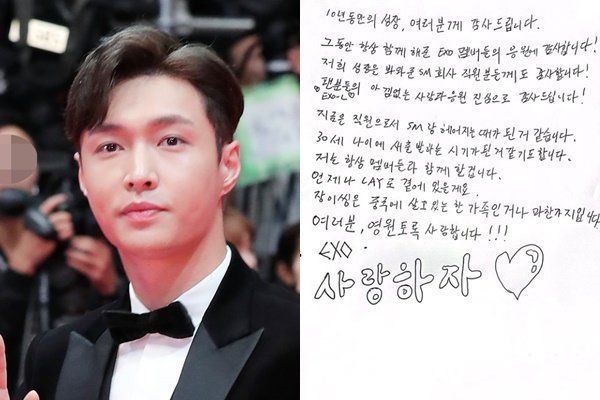 10년동안의 성장, 여러분께 감사드립니다.
그동안 항상 함께 해준 EXO 멤버들의 응원에 감사합니다!
저희 성장은 봐와준 SM 회사 직원분들께도 감사합니다!
팬분들의 아낌없는 사랑과응원 진심으로 감사드립니다!
EXO-L
지금은 직원으로서 SM 랑 헤어지는때가 된거 같습니다.
30세 나이에 새출발하는 시기가 된거 같기도합니다.
저는 항상 멤버들과 함께 할겁니다.
언제나 LAY로 곁에 있을게요.
장이씽은 중국에 살고있는 한 가족인거나 마찬가지입니다
여러분, 영원토록 사랑합니다!!!
EXO.
사랑하자